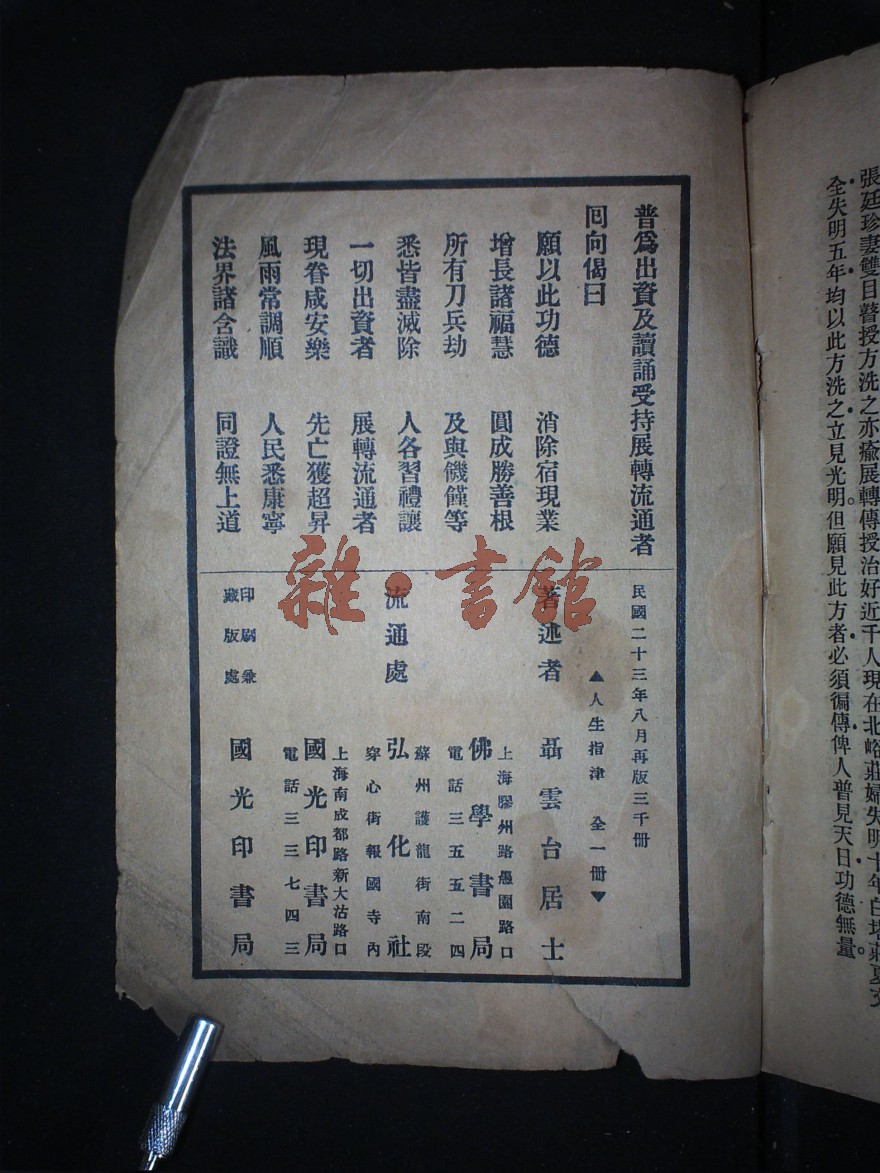 張廷珍妻雙目瞽授方洗之亦瘉展轉傳授治好近千人現在北峪莊婦失明十年白塔莊夏文
全失明五年均以此方洗之立見光明但願見此方者必須徧傳俾人普見天日功德無量
普爲出資及讀誦受持展轉流通者
回向偈曰
願以此功德 消除宿現業
增長諸福慧 圓成勝善根
所有刀兵劫 及與饑饉等
悉皆盡滅除 人各習禮讓
一切出資者 展轉流通者
現眷咸安樂 先亡獲超昇
風雨常調順 人民悉康寧
法界諸含識 同證無上道
民國二十三年八月再版三千册
▲人生指津 全一册▼
著述者 聶雲台居士
流通處
上海膠州路愚園路口
佛學書局
電話三五五二四
蘇州護龍街南段
弘化社
穿心街報國寺內
上海南成都路新大沽路口
國光印書局
電話三三七四三
印刷兼
藏版處
國光印書局
雜·書館